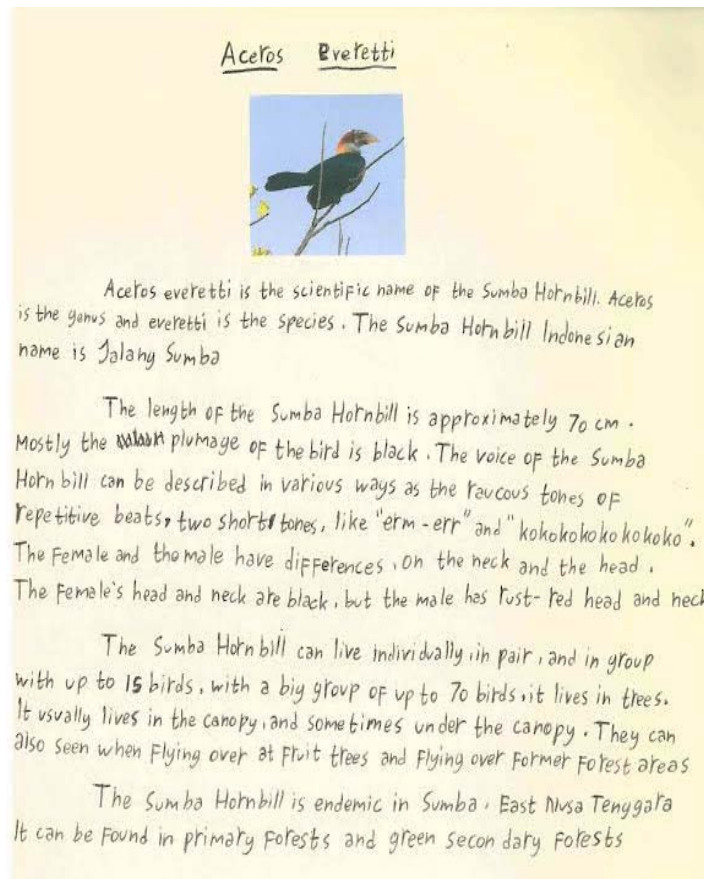 Aceros Everetti
Aceros everetti is the scientific name of the Sumba Hornbill. Aceros
is the genus and everetti is the species. The Sumba Hornbill Indonesian
name is Jalang Sumba
The length of the Sumba Hornbill is approximately 70 cm.
Mostly the plumage of the bird is black. The voice of the Sumba
Hornbill can be described in various ways as the raucous tones of
repetitive beats, two short tones, like "erm-err" and "kokokokokokokoko".
The Female and the male have differences, on the neck and the head.
The Female's head and neck are black, but the male has rust-red head and neck
The Sumba Hornbill can live individually, in pair, and in group
with up to 15 birds, with a big group of up to 70 birds, it lives in trees.
It usually lives in the canopy, and sometimes under the canopy. They can
also seen when Flying over at Fruit trees and Flying over Former Forest areas
The Sumba Hornbill is endemic in Sumba, East Nusa Tenggara
It can be Found in primary Forests and green secondary Forests